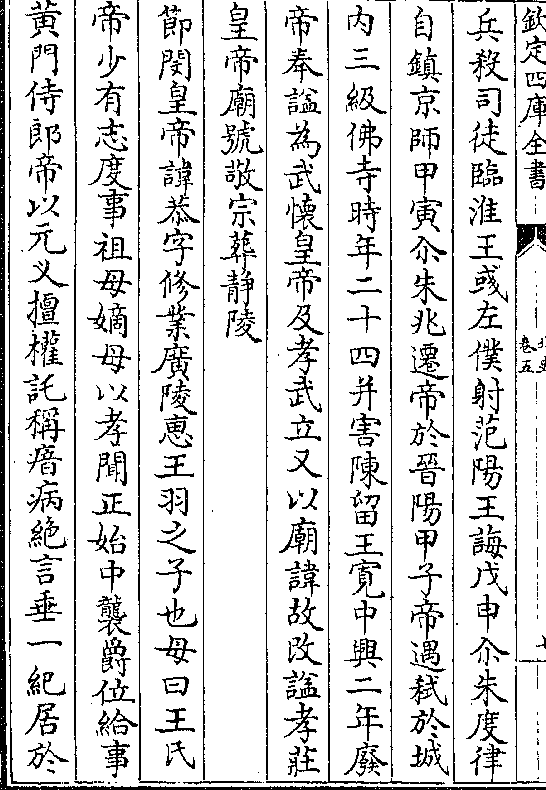 欽定四庫全書
北史
卷五
七
兵殺司徒臨淮王彧左僕射范陽王誨戊申尒朱度律
自鎮京師甲寅尒朱兆遷帝於晉陽甲子帝遇弑於城
内三級佛寺時年二十四并害陳留王寛中興二年廢
帝奉謚為武懷皇帝及孝武立又以廟諱故改謚孝莊
皇帝廟號敬宗葬静陵
節閔皇帝諱恭字修業廣陵恵王羽之子也母曰王氏
帝少有志度事祖母嫡母以孝聞正始中襲爵位給事
黄門侍郎帝以元乂擅權託稱瘖病絶言垂一紀居於